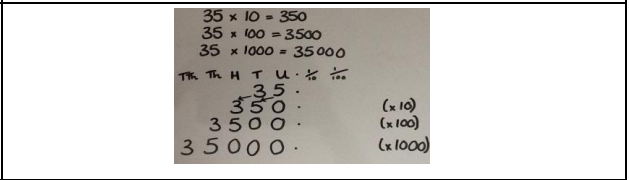 35 × 10 = 350
35 × 100 = 3500
35 × 1000 = 35000
TTh Th H T U . 1/10 1/100
35.
350. (×10)
3500. (×100)
35000. (×1000)